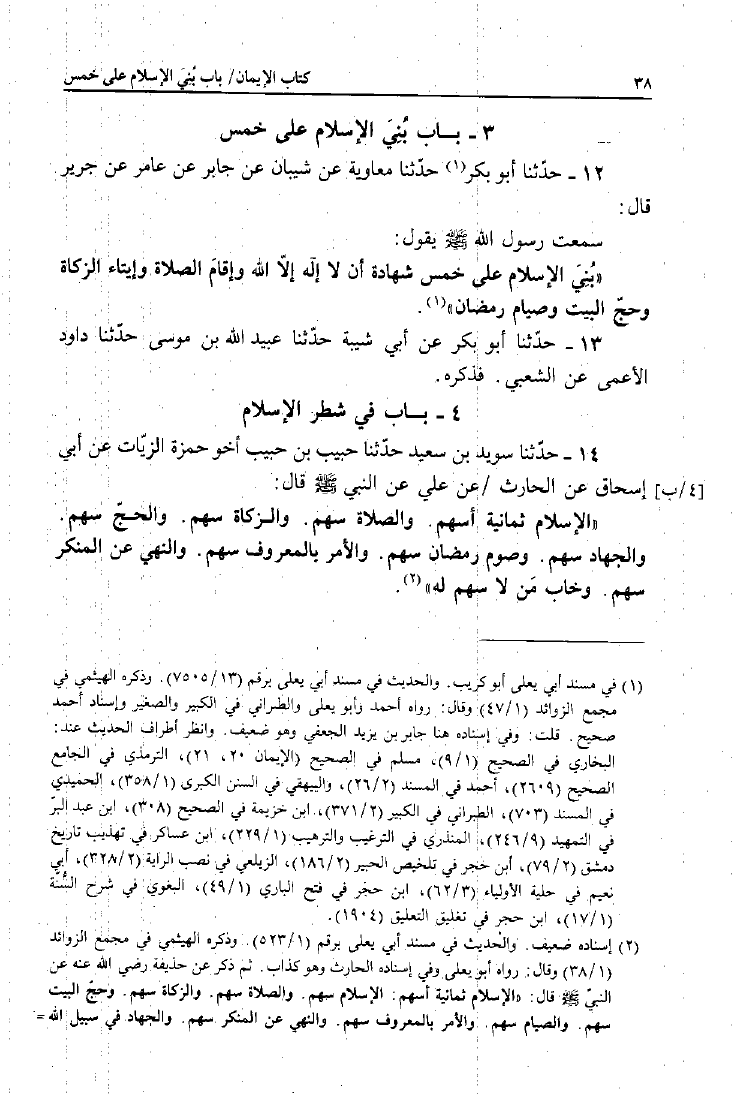 ٣٨ كتاب الإيمان/ باب بُنيَ الإسلام على خمس
٣ ـ بـــاب بُنِيَ الإسلام على خمس
١٢ ـ حدّثنا أبو بكر(١) حدّثنا معاوية عن شيبان عن جابر عن عامر عن جرير
قال:
سمعت رسول الله ﷺ يقول:
«بُنِيَ الإسلام على خمس شهادة أن لا إلَه إلاّ الله وإقامَ الصلاة وإيتاء الزكاة
وحجّ البيت وصيام رمضان»(١).
١٣ ـ حدّثنا أبو بكر عن أبي شيبة حدّثنا عبيد الله بن موسى حدّثنا داود
الأعمى عن الشعبي. فذكره.
٤ ـ بـــاب في شطر الإسلام
١٤ ـ حدّثنا سويد بن سعيد حدّثنا حبيب بن حبيب أخو حمزة الزيّات عن أبي
[٤/ب] إسحاق عن الحارث /عن علي عن النبي ﷺ قال:
«الإسلام ثمانية أسهم. والصلاة سهم. والزكاة سهم. والحجّ سهم.
والجهاد سهم. وصوم رمضان سهم. والأمر بالمعروف سهم. والنهي عن المنكر
سهم. وخاب مَن لا سهم له»(٢).
(١) في مسند أبي يعلى أبو كريب. والحديث في مسند أبي يعلى برقم (٧٥٠٥/١٣). وذكره الهيثمي في
مجمع الزوائد (٤٧/١) وقال: رواه أحمد وأبو يعلى والطبراني في الكبير والصغير وإسناد أحمد
صحيح. قلت: وفي إسناده هنا جابر بن يزيد الجعفي وهو ضعيف. وانظر أطراف الحديث عند:
البخاري في الصحيح (٩/١)، مسلم في الصحيح (الإيمان ٢٠، ٢١)، الترمذي في الجامع
الصحيح (٢٦٠٩)، أحمد في المسند (٢٦/٢)، والبيهقي في السنن الكبرى (٣٥٨/١)، الحميدي
في المسند (٧٠٣)، الطبراني في الكبير (٣٧١/٢)، ابن خزيمة في الصحيح (٣٠٨)، ابن عبد البرّ
في التمهيد (٢٤٦/٩)، المنذري في الترغيب والترهيب (٢٢٩/١)، ابن عساكر في تهذيب تاريخ
دمشق (٧٩/٢)، ابن حجر في تلخيص الحبير (١٨٦/٢)، الزيلعي في نصب الراية (٣٢٨/٢)، أبي
نعيم في حلية الأولياء (٦٢/٣)، ابن حجر في فتح الباري (٤٩/١)، البغوي في شرح السُّنّة
(١٧/١)، ابن حجر في تغليق التعليق (١٩٠٤).
(٢) إسناده ضعيف. والحديث في مسند أبي يعلى برقم (٥٢٣/١). وذكره الهيثمي في مجمع الزوائد
(٣٨/١) وقال: رواه أبو يعلى وفي إسناده الحارث وهو كذاب. ثم ذكر عن حذيفة رضي الله عنه عن
النبيّ ﷺ قال: «الإسلام ثمانية أسهم: الإسلام سهم. والصلاة سهم. والزكاة سهم. وحجّ البيت
سهم. والصيام سهم. والأمر بالمعروف سهم. والنهي عن المنكر سهم. والجهاد في سبيل الله =